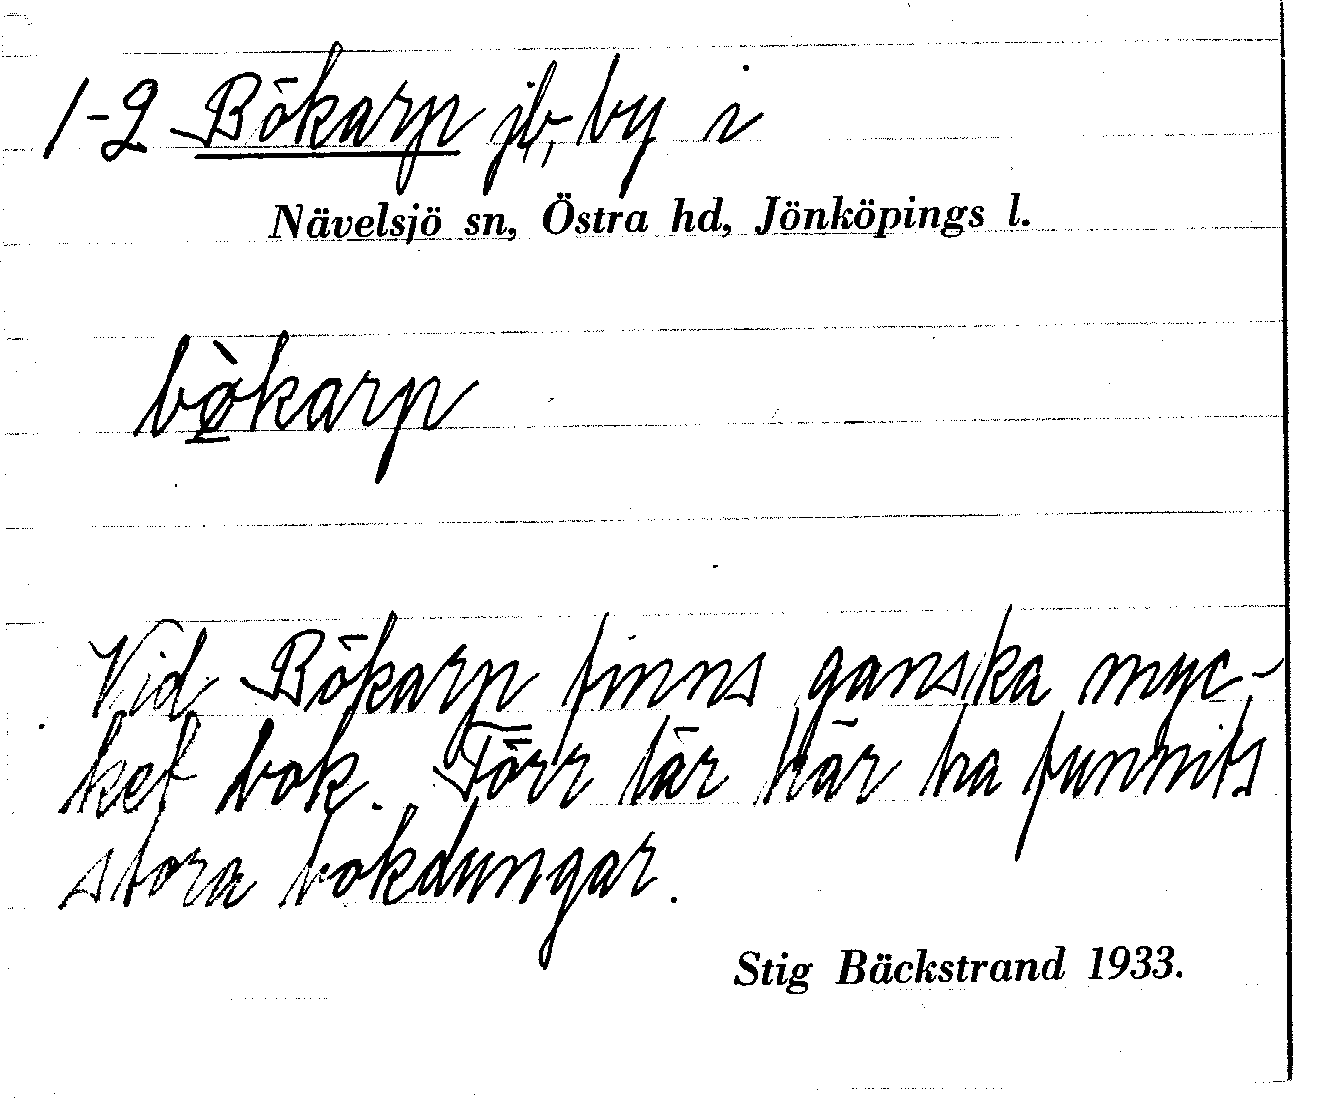 1-2 Bökarp jb, by i
Nävelsjö sn, Östra hd, Jönköpings l.
bø̀karp
Vid Bökarp finns ganska myc-
ket bok. Förr lär här ha funnits
stora bokdungar.
Stig Bäckstrand 1933.